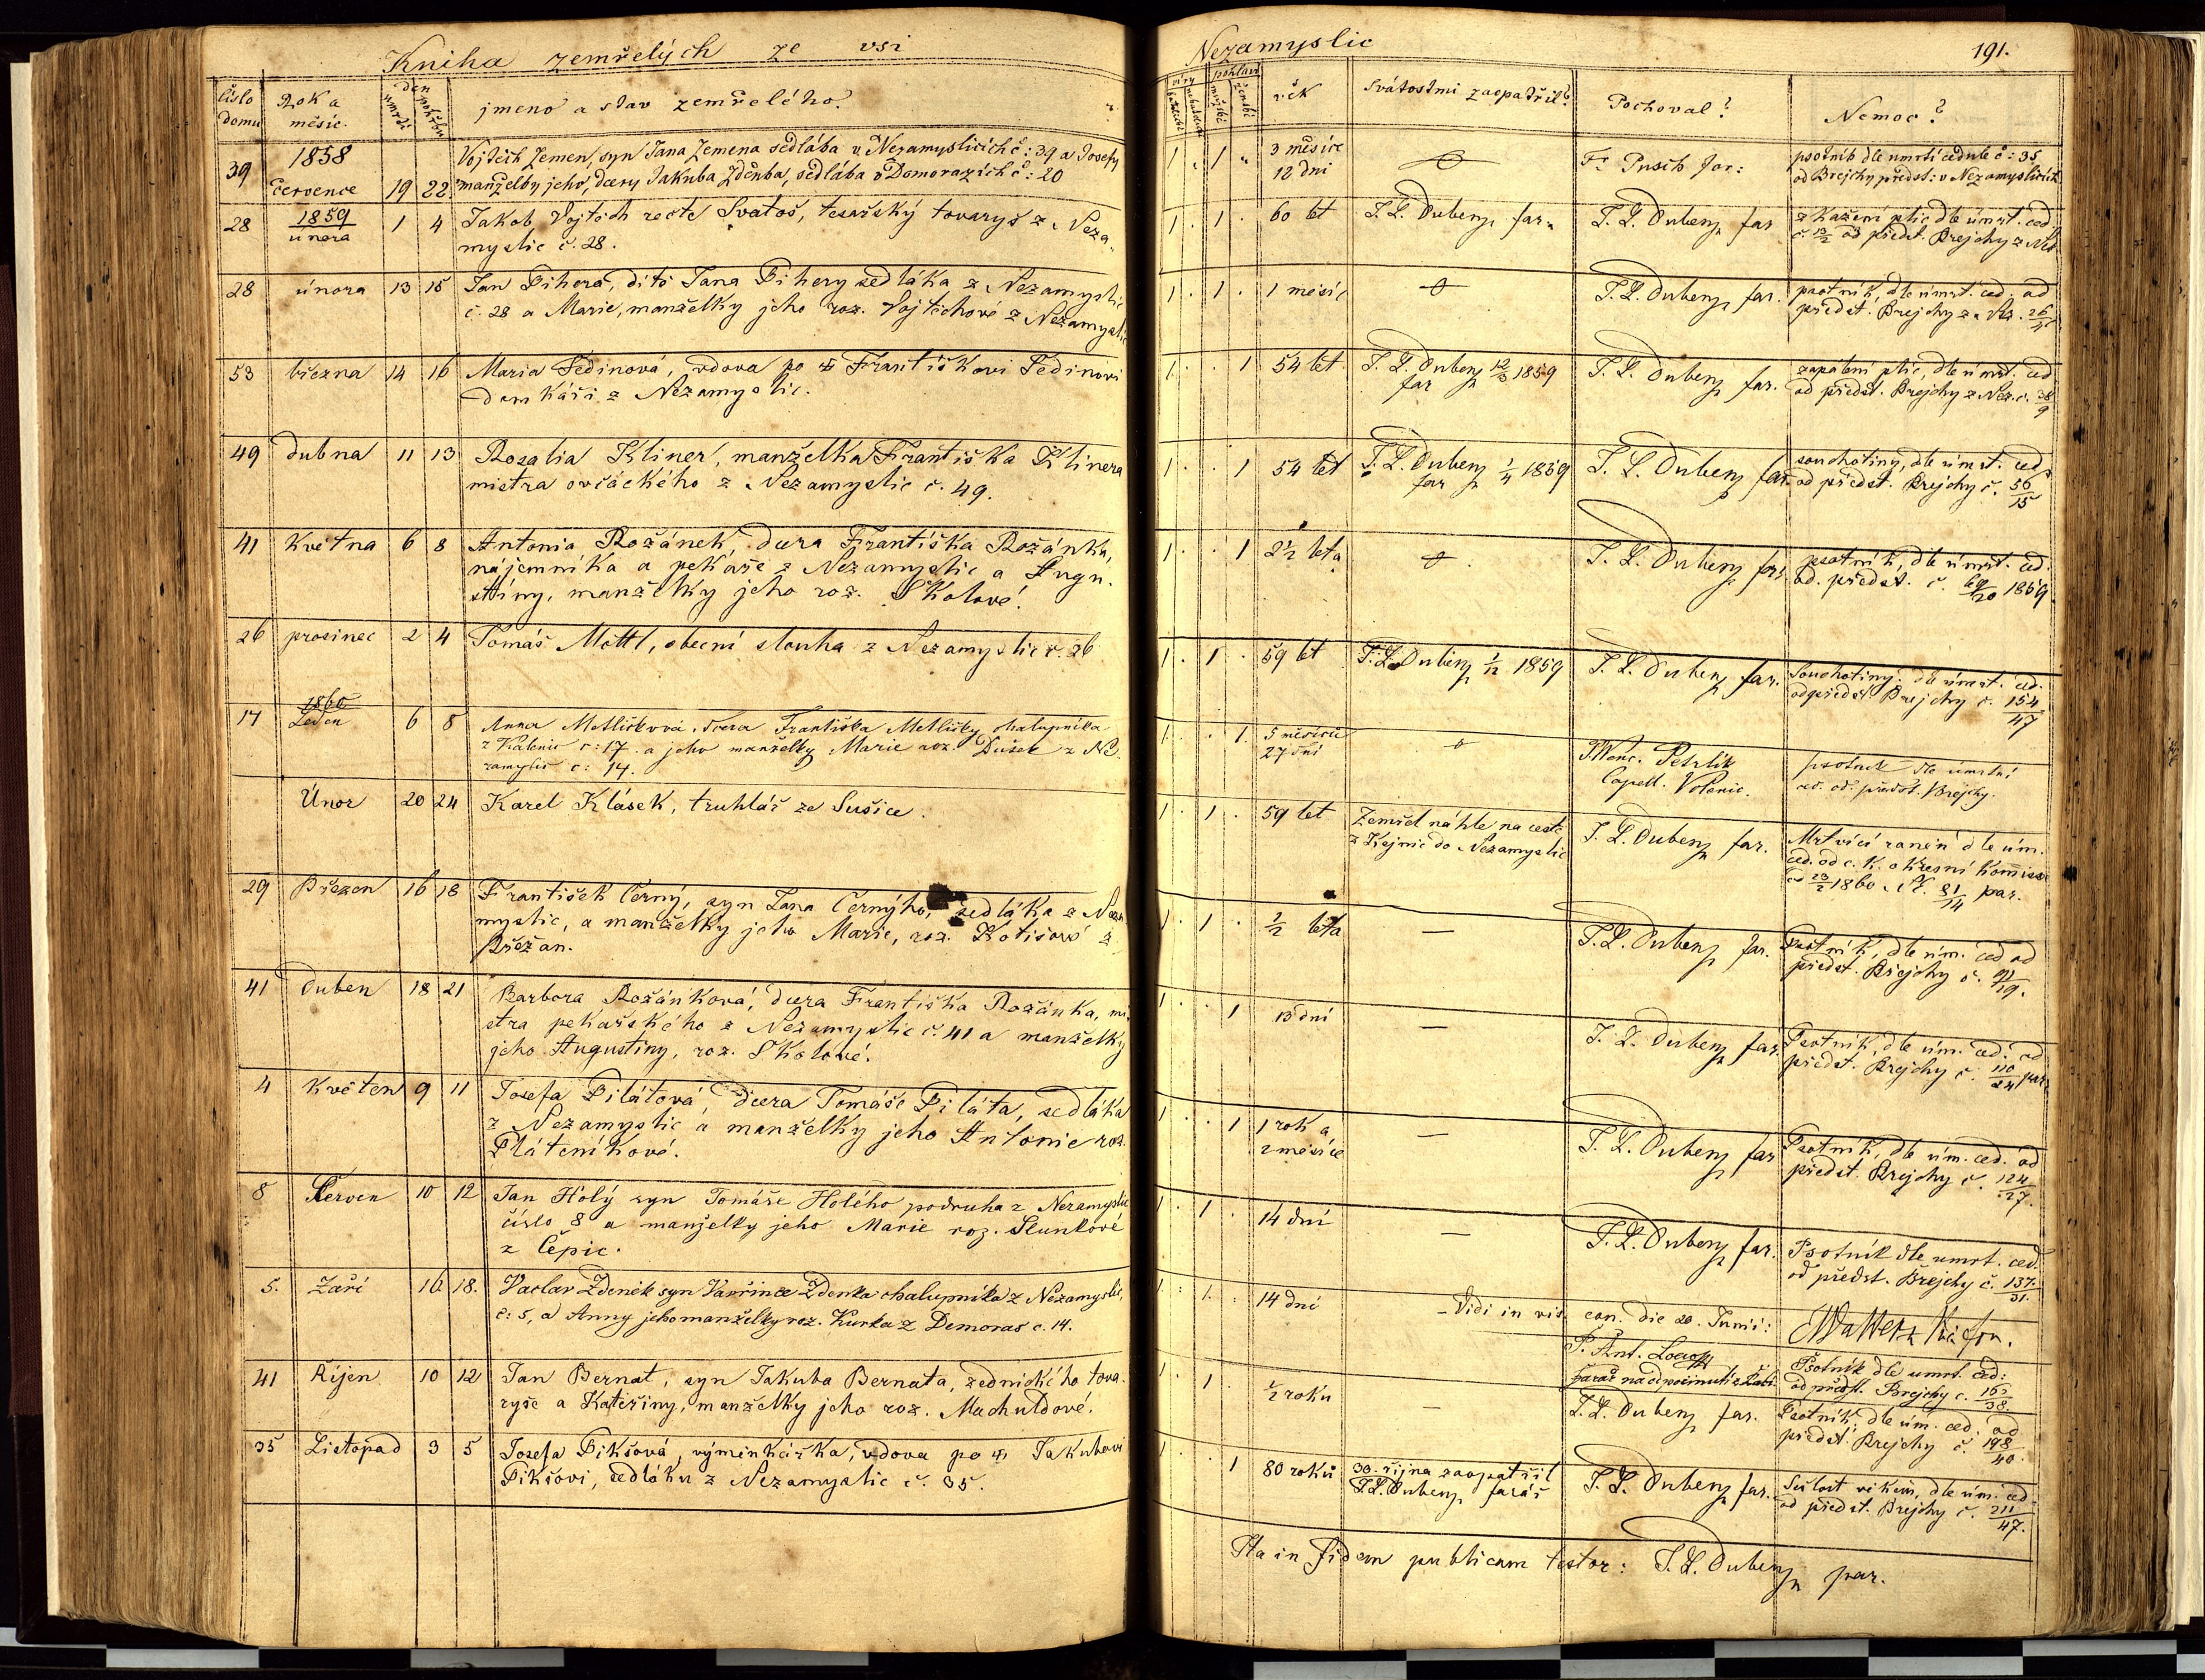 Kniha zemřelých ze vsi Nezamyslic
191.
číslo domu
Rok a měsíc.
den
umrtí
pohřbu
jmeno a stav zemřelého?
víry
pohlaví
mužské
ženské
věk
Svátostmi zaopatřil?
Pochoval?
Nemoc?
39
1858
července
19 22
Vojtěch Zemen, syn Jana Zemena sedláka v Nezamyslicích č: 39 a Josefy
manželky jeho, dcery Jakuba Zdeňka, sedláka v Domorazích č: 20
1 1
3 měsíce
12 dni
psotník dle umrtí cedule č: 35
od Brejchy předst: v Nezamyslicích
28
1859
února
1 4
Jakob Vojtěch recte Svatoš, tesařský tovaryš z Neza-
myslic č. 28.
1 1
60 let
J. L. Dubenz far.
J. L. Dubenz far
z Kažení plic dle úmrt. ced.
č. 13/2 od předst. Brejchy z Nez
28
února
13 15
Jan Pihera, dítě Jana Pihery sedláka z Nezamyslic
č. 28 a Marie, manželky jeho roz. Vojtěchové z Nezamyslic
1 1
1 měsíc
J. L. Dubenz far.
psotník, dle úmrt. ced. od
předst. Brejchy z Nez. 26/4
53
března
14 16
Maria Šedinová, vdova po Františkovi Šedinovi
domkáři z Nezamyslic.
1 1
54 let
J. L. Dubenz 12/3 1859
far
J. L. Dubenz far.
zapálení plic, dle úmrt. ced
od předst. Brejchy z Nez. č. 38/9
49
dubna
11 13
Rosalia Kliner, manželka Františka Klinera
mistra ovčáckého z Nezamyslic č. 49.
1 1
54 let
J. L. Dubenz 1/4 1859
far
J. L. Dubenz far.
souchotiny, dle úmrt. ced.
od předst. Brejchy č. 56/15
41
Května
6 8
Antonia Rožánek, dcera Františka Rožánka,
nájemníka a pekaře z Nezamyslic a Augu-
stiny, manželky jeho roz. Skolové.
1 1
2½ leta
J. L. Dubenz far.
psotník, dle úmrt. ced.
od. předst. č. 69/20 1859.
26
prosinec
2 4
Tomáš Mottl, obecní slouha z Nezamyslic č. 26
1 1
59 let
J. L. Dubenz 1/12 1859
J. L. Dubenz far.
Souchotiny. dle úmrt. ced.
od předst Brejchy č. 154/47
17
1860
Leden
6 8
Anna Metličková dcera Františka Metličky chalupníka
z Kalenic č: 17. a jeho manželky Marie roz. Dušek z Ne-
zamyslic č: 14.
1
5 měsíců
27 dní
P. Wenc. Petrlik
Capell. Volenic.
psotnik dle úmrtní
ced. od. předst. Brejchy.
Únor
20 24
Karel Klásek, truhlář ze Sušice.
1 1
59 let
Zemřel náhle na cestě
z Kejnic do Nezamyslic
J. L. Dubenz far.
Mrtvicí raněn dle úm.
ced. od c. k. okresní Komisse
od 23/2 1860 N. 81/14 par.
29
Březen
16 18
František Černý, syn Jana Černýho, sedláka z Neza
myslic, a manželky jeho Marie, roz. Kotišové z
Břežan.
1 1
½ leta
—
J. L. Dubenz far.
Psotník, dle úm. ced od
předst. Brejchy č. 91/19.
41
Duben
18 21
Barbora Rožánková, dcera Františka Rožánka, mi-
stra pekařského z Nezamyslic č. 41 a manželky
jeho Augustiny, roz. Skolové.
1 1
13 dní
—
J. L. Dubenz far.
Psotník, dle úm. ced. od
předst. Brejchy č. 110/24 par.
4
Květen
9 11
Josefa Pilátová, dcera Tomáše Piláta, sedláka
z Nezamyslic a manželky jeho Antonie roz.
Pláteníkové.
1 1
1 rok a
2 měsíce
—
J. L. Dubenz far
Psotník, dle úm. ced. od
předst. Brejchy č. 124/27.
8
Červen
10 12
Jan Holý syn Tomáše Holého podruha z Nezamyslic
číslo 8 a manželky jeho Marie roz. Slunkové
z Čepic.
1 1
14 dní
—
J. L. Dubenz far.
Psotník dle umrt. ced.
od předst. Brejchy č. 137/31.
5.
Září
16 18.
Vaclav Zdeněk syn Vavřince Zdenka chalupníka z Nezamyslic,
č: 5, a Anny jeho manželky roz. Kurka z Demoras č. 14.
1 1
14 dní
– Vidi in vis. can. die 20. Junii:
P. Ant.
farář na odpočinutí z Rabí
Psotník dle umrt. ced:
od předst. Brejchy č. 165/38.
41
Říjen
10 12
Jan Bernat, syn Jakuba Bernata, zednického tova-
ryše a Kateřiny, manželky jeho roz. Machuldové.
1
½ roku
—
J. L. Dubenz far.
Psotník, dle úm. ced. od
předst. Brejchy č. 198/40.
35
Listopad
3 5
Josefa Pikšová, výminkářka, vdova po Jakubovi
Pikšovi, sedláku z Nezamyslic č. 35.
1 1
80 roků
30. října zaopatřil
J. L. Dubenz, farář
J. L. Dubenz far.
Sešlost věkem, dle úm. ced
od předst. Brejchy č. 211/47.
Ita in fidem publicam testor: J. L. Dubenz par.